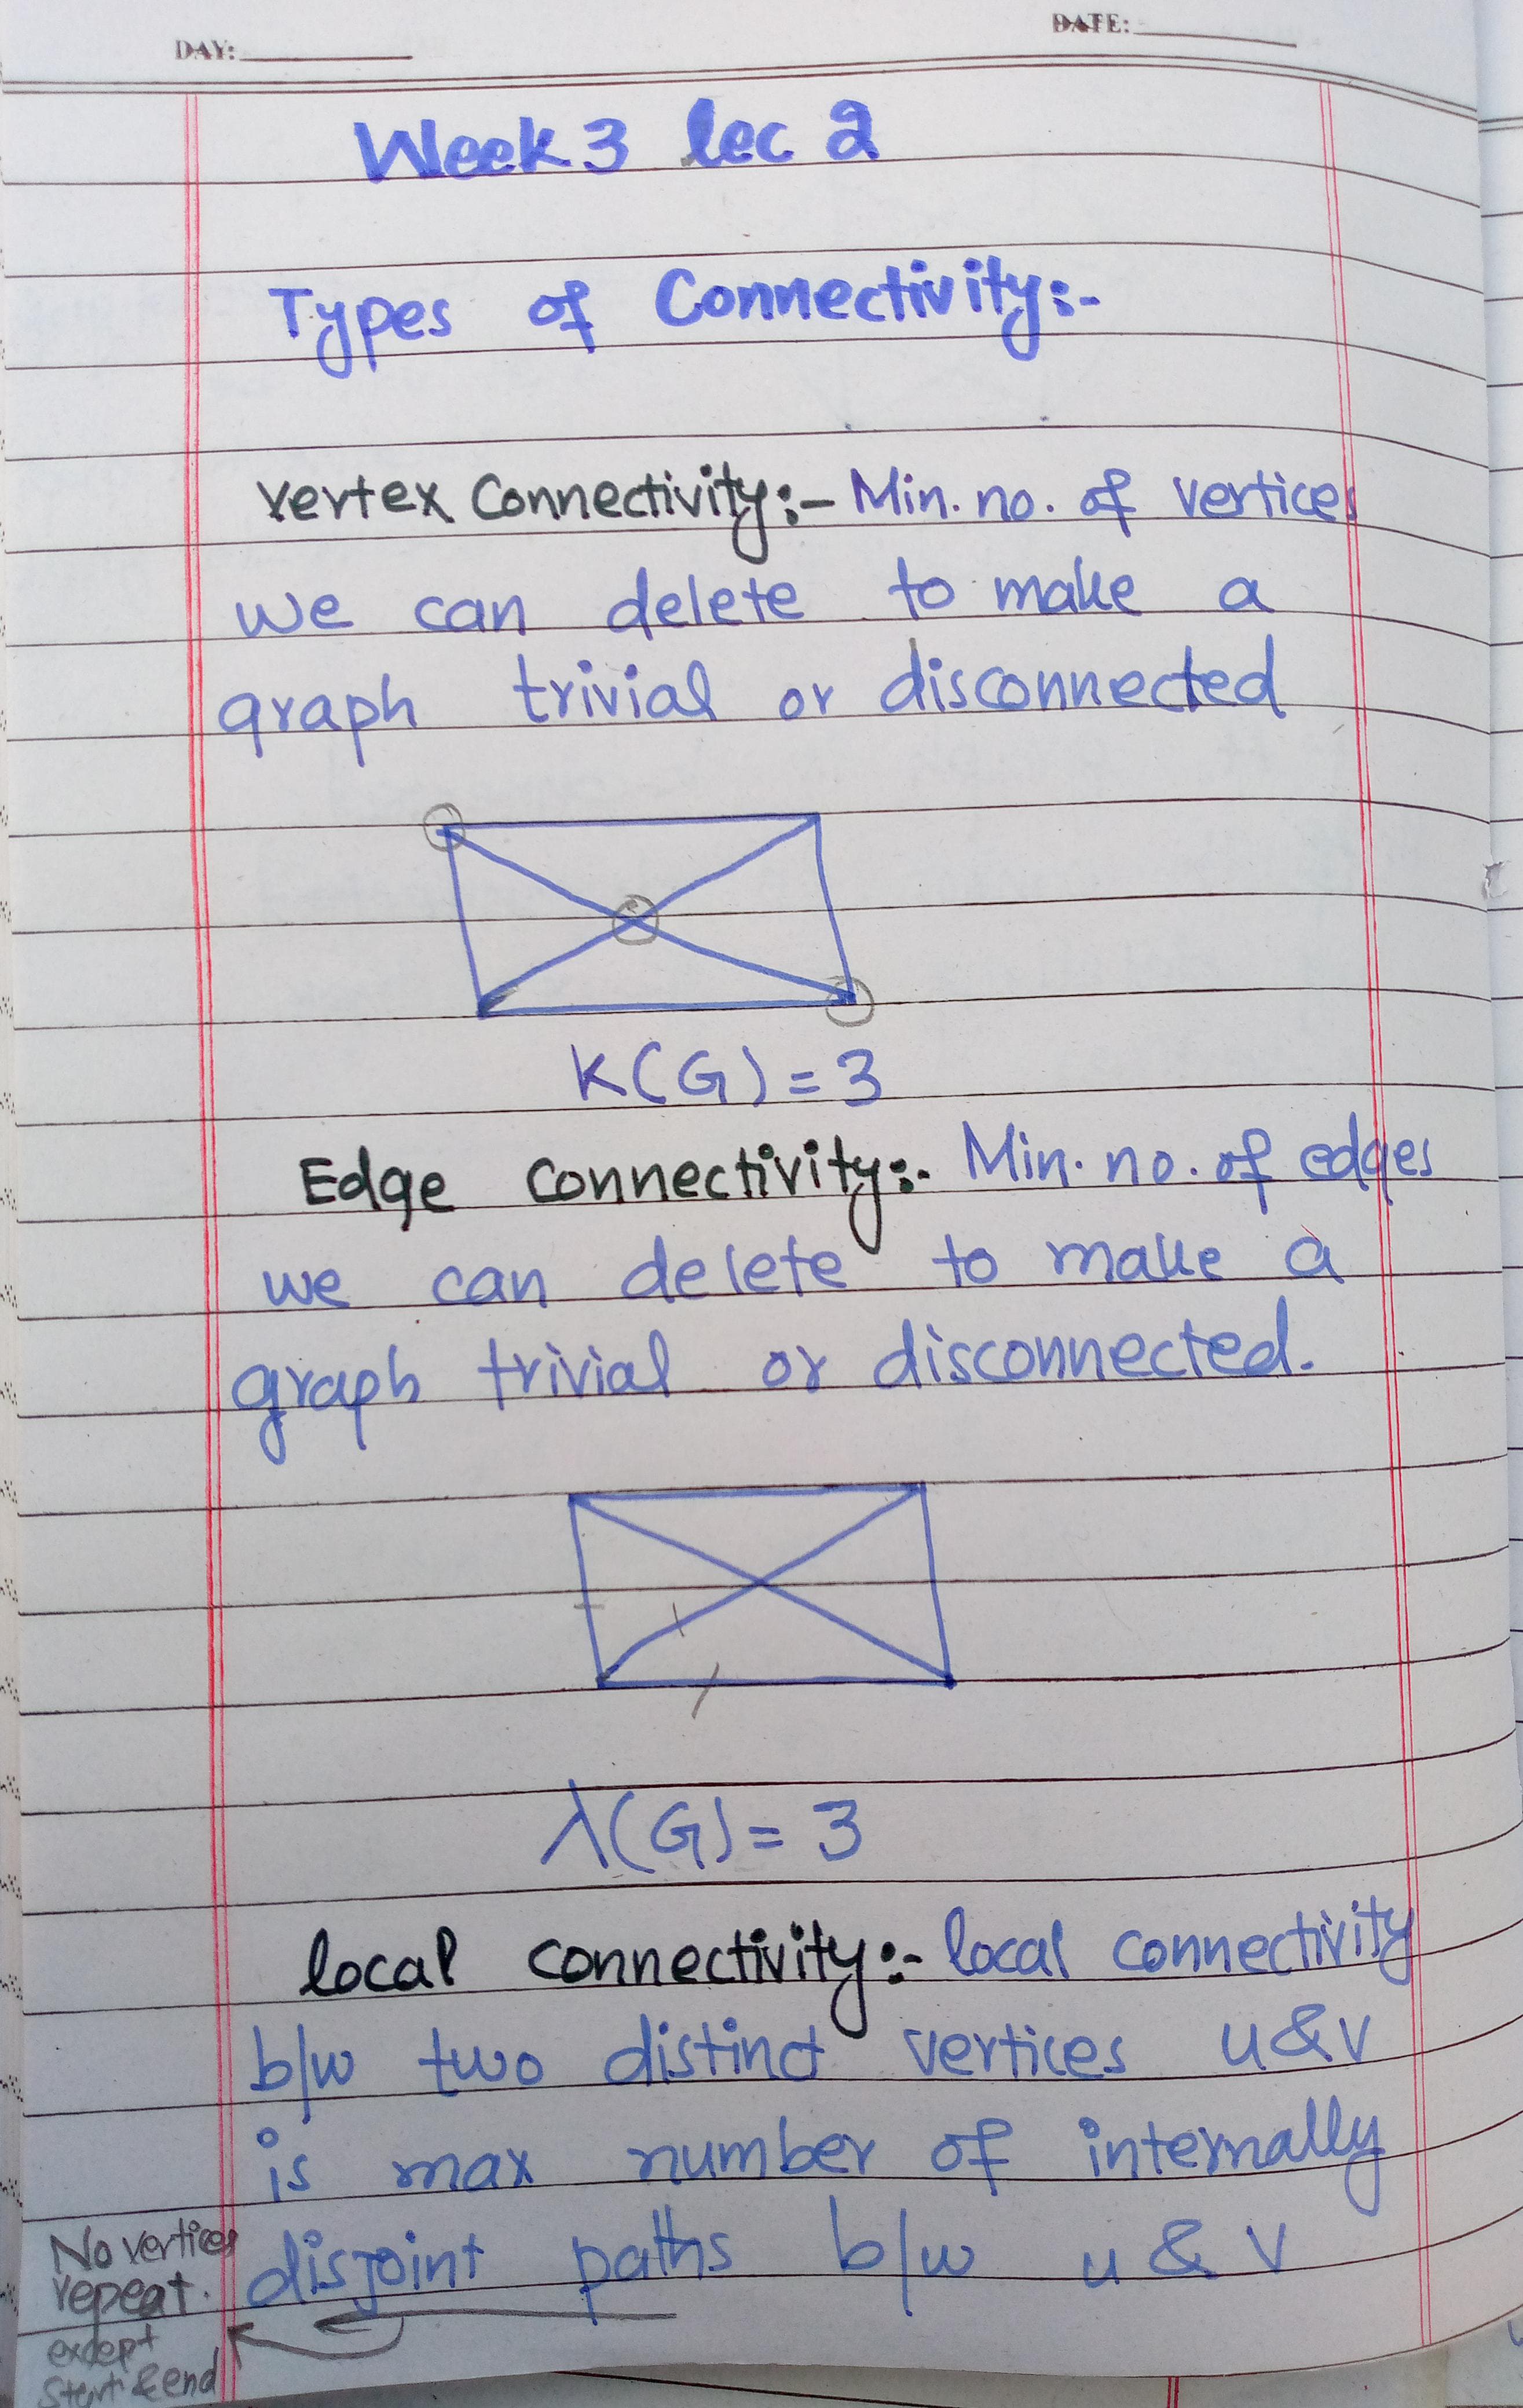 DAY:
DATE:
Week 3 lec 2
Types of Connectivity:-
Vertex Connectivity:- Min. no. of vertices
we can delete to make a
graph trivial or disconnected
K(G) = 3
Edge connectivity:- Min. no. of edges
we can delete to make a
graph trivial or disconnected.
λ(G) = 3
local connectivity:- local connectivity
b/w two distinct vertices u & v
is max number of internally
disjoint paths b/w u & v
No vertices
repeat.
except
Start & end